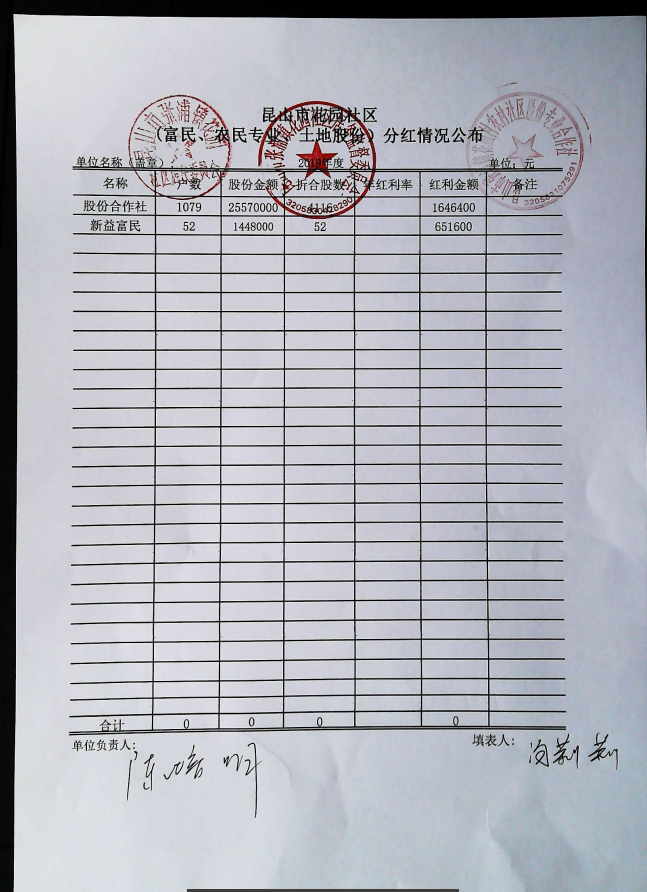 昆山市花园社区
（富民、农民专业、土地股份）分红情况公布
单位名称（盖章） 2019年度 单位：元
名称 户数 股份金额 折合股数 年红利率 红利金额 备注
股份合作社 1079 25570000 4116 1646400
新益富民 52 1448000 52 651600
合计 0 0 0 0
单位负责人： 填表人：